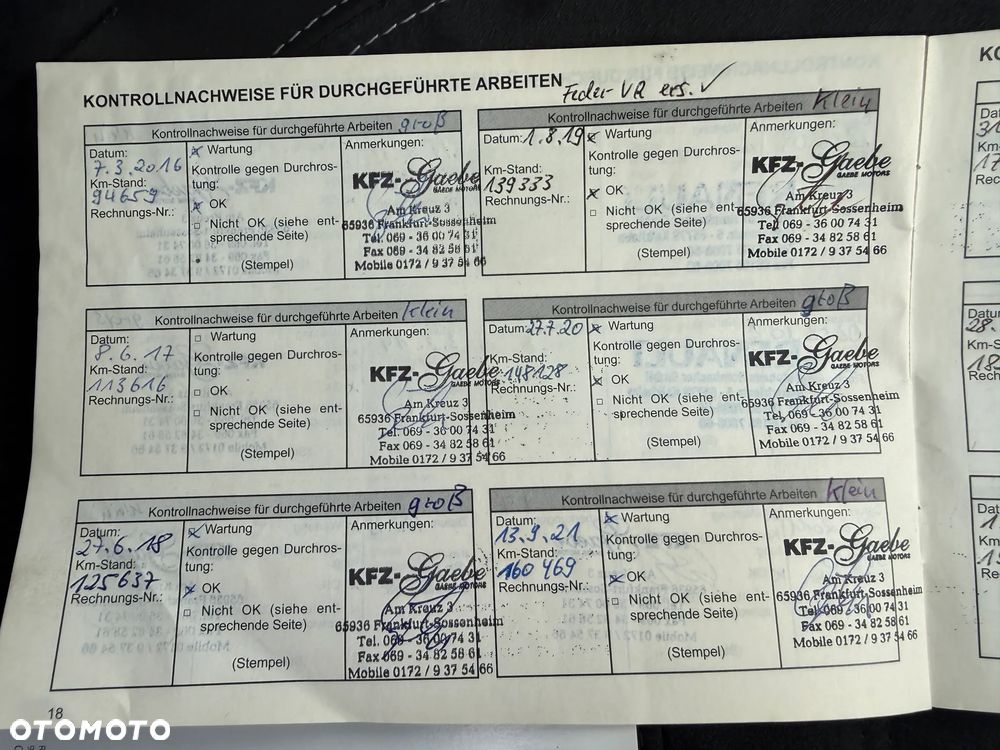 KONTROLLNACHWEISE FÜR DURCHGEFÜHRTE ARBEITEN
Feder VR ers. ✓
Kontrollnachweise für durchgeführte Arbeiten groß
Datum:
7.3.2016
Km-Stand:
94659
Rechnungs-Nr.:
Wartung
Kontrolle gegen Durchros-
tung:
OK
Nicht OK (siehe ent-
sprechende Seite)
(Stempel)
Anmerkungen:
KFZ-Gaebe
GAEBE MOTORS
Am Kreuz 3
65936 Frankfurt-Sossenheim
Tel. 069 - 36 00 74 31
Fax 069 - 34 82 58 61
Mobile 0172 / 9 37 54 66
Kontrollnachweise für durchgeführte Arbeiten Klein
Datum: 1.8.19
Km-Stand:
139333
Rechnungs-Nr.:
Wartung
Kontrolle gegen Durchros-
tung:
OK
Nicht OK (siehe ent-
sprechende Seite)
(Stempel)
Anmerkungen:
KFZ-Gaebe
GAEBE MOTORS
Am Kreuz 3
65936 Frankfurt-Sossenheim
Tel. 069 - 36 00 74 31
Fax 069 - 34 82 58 61
Mobile 0172 / 9 37 54 66
Kontrollnachweise für durchgeführte Arbeiten Klein
Datum:
8.6.17
Km-Stand:
113616
Rechnungs-Nr.:
Wartung
Kontrolle gegen Durchros-
tung:
OK
Nicht OK (siehe ent-
sprechende Seite)
(Stempel)
Anmerkungen:
KFZ-Gaebe
GAEBE MOTORS
Am Kreuz 3
65936 Frankfurt-Sossenheim
Tel. 069 - 36 00 74 31
Fax 069 - 34 82 58 61
Mobile 0172 / 9 37 54 66
Kontrollnachweise für durchgeführte Arbeiten groß
Datum: 27.7.20
Km-Stand:
148128
Rechnungs-Nr.:
Wartung
Kontrolle gegen Durchros-
tung:
OK
Nicht OK (siehe ent-
sprechende Seite)
(Stempel)
Anmerkungen:
KFZ-Gaebe
GAEBE MOTORS
Am Kreuz 3
65936 Frankfurt-Sossenheim
Tel. 069 - 36 00 74 31
Fax 069 - 34 82 58 61
Mobile 0172 / 9 37 54 66
Kontrollnachweise für durchgeführte Arbeiten groß
Datum:
27.6.18
Km-Stand:
125637
Rechnungs-Nr.:
Wartung
Kontrolle gegen Durchros-
tung:
OK
Nicht OK (siehe ent-
sprechende Seite)
(Stempel)
Anmerkungen:
KFZ-Gaebe
GAEBE MOTORS
Am Kreuz 3
65936 Frankfurt-Sossenheim
Tel. 069 - 36 00 74 31
Fax 069 - 34 82 58 61
Mobile 0172 / 9 37 54 66
Kontrollnachweise für durchgeführte Arbeiten Klein
Datum:
13.9.21
Km-Stand:
160469
Rechnungs-Nr.:
Wartung
Kontrolle gegen Durchros-
tung:
OK
Nicht OK (siehe ent-
sprechende Seite)
(Stempel)
Anmerkungen:
KFZ-Gaebe
GAEBE MOTORS
Am Kreuz 3
65936 Frankfurt-Sossenheim
Tel. 069 - 36 00 74 31
Fax 069 - 34 82 58 61
Mobile 0172 / 9 37 54 66
18
OTOMOTO